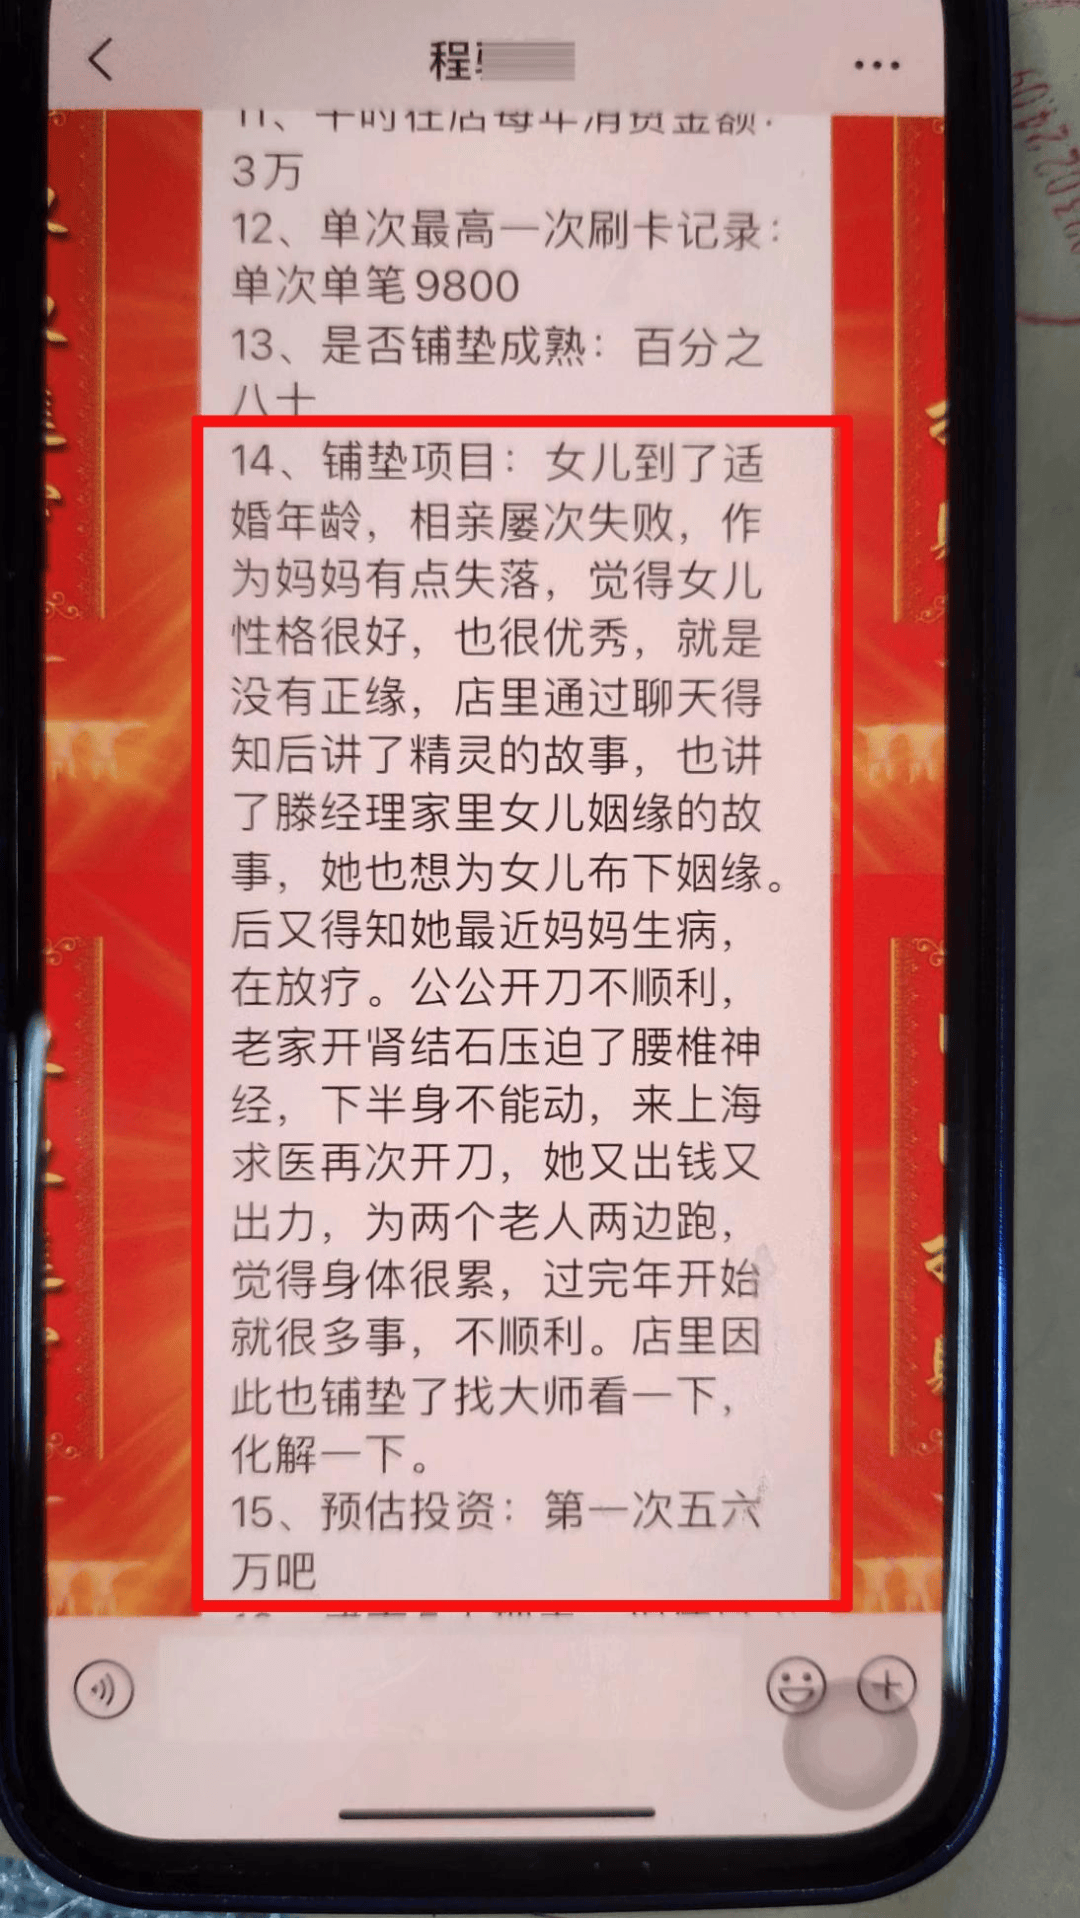 程
11、平时在店每年消费金额：
3万
12、单次最高一次刷卡记录：
单次单笔9800
13、是否铺垫成熟：百分之
八十
14、铺垫项目：女儿到了适
婚年龄，相亲屡次失败，作
为妈妈有点失落，觉得女儿
性格很好，也很优秀，就是
没有正缘，店里通过聊天得
知后讲了精灵的故事，也讲
了滕经理家里女儿姻缘的故
事，她也想为女儿布下姻缘。
后又得知她最近妈妈生病，
在放疗。公公开刀不顺利，
老家开肾结石压迫了腰椎神
经，下半身不能动，来上海
求医再次开刀，她又出钱又
出力，为两个老人两边跑，
觉得身体很累，过完年开始
就很多事，不顺利。店里因
此也铺垫了找大师看一下，
化解一下。
15、预估投资：第一次五六
万吧